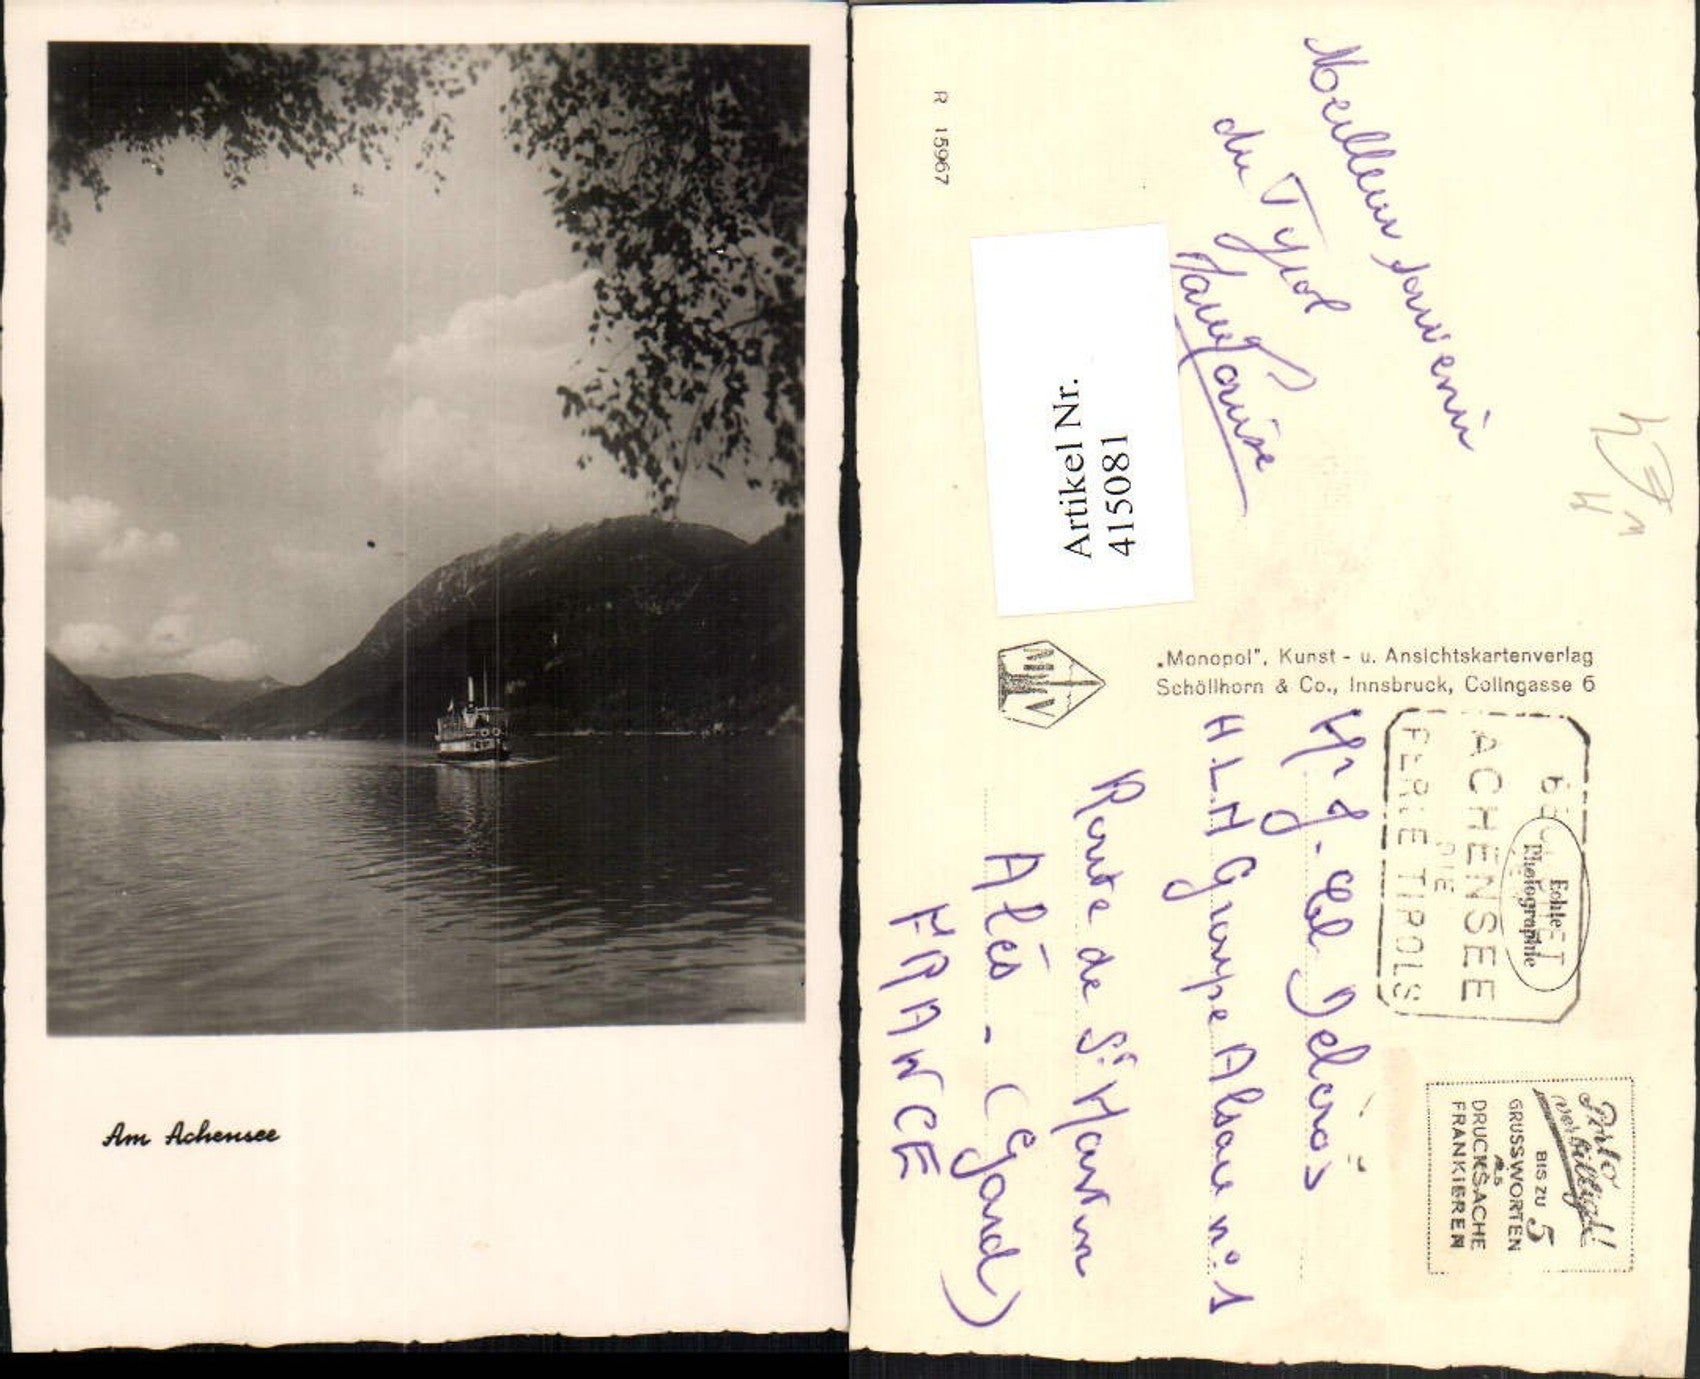 Am Achensee
R 15967
Meilleur souvenir
du Tyrol
Artikel Nr.
415081
„Monopol", Kunst- u. Ansichtskartenverlag
Schöllhorn & Co., Innsbruck, Colingasse 6
ACHENSEE
DIE
PERLE TIROLS
Echte
Photographie
Porto
verbilligt!
BIS ZU 5
GRUSSWORTEN
ALS
DRUCKSACHE
FRANKIEREN
H.L.M Groupe Alsau n°1
Route de St
Alès - (Gard)
FRANCE